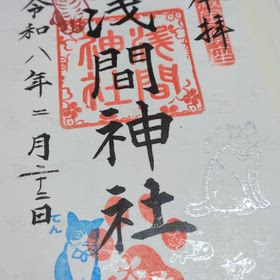 奉拝
浅間神社
浅間
神社
令和八年二月二十二日
てん